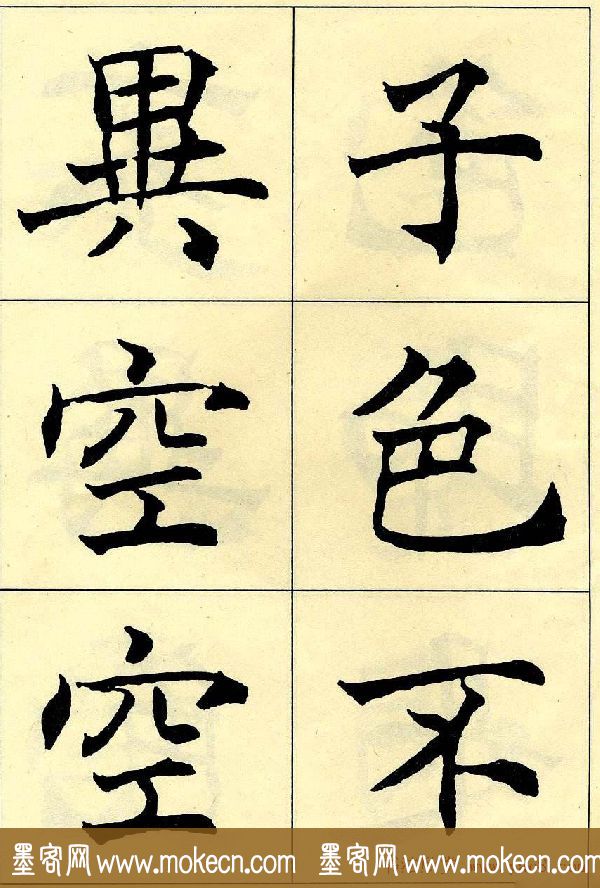 子色不
異空空
墨客网 www.mokecn.com 墨客网 www.mokecn.com